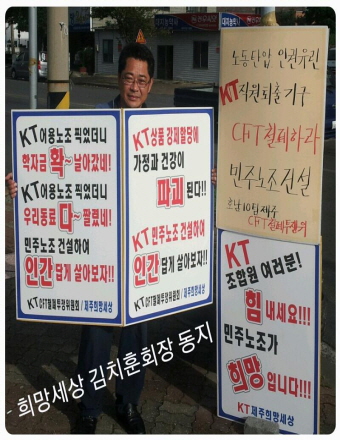 KT어용노조 찍었더니
학자금 확~날아갔네!
KT어용노조 찍었더니
우리동료 다~짤렸네!
민주노조 건설하여
인간 답게 살아보자!!
KT CFT철폐투쟁위원회 / 제주희망세상
KT상품 강제할당에
가정과 건강이
파괴 된다!!
KT 민주노조 건설하여
인간 답게 살아보자!!
KT CFT철폐투쟁위원회 / 제주희망세상
노동탄압 인권유린
KT직원퇴출기구
CFT철폐하라
민주노조건설
CFT철폐투쟁위
KT
조합원 여러분!
힘 내세요!!!
민주노조가
희망 입니다!!!
KT 제주희망세상
- 희망세상 김치훈회장 동지